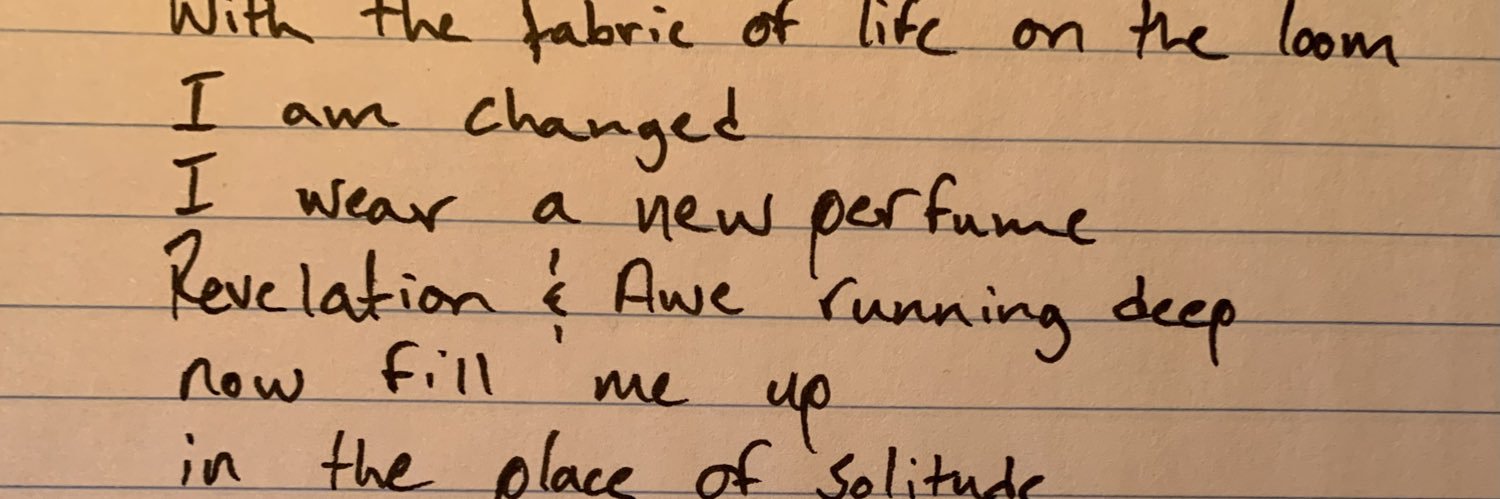 With the fabric of life on the loom
I am changed
I wear a new perfume
Revelation & Awe running deep
now fill me up
in the place of solitude